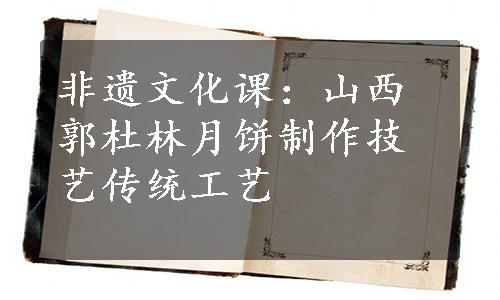 非遗文化课：山西
郭杜林月饼制作技
艺传统工艺